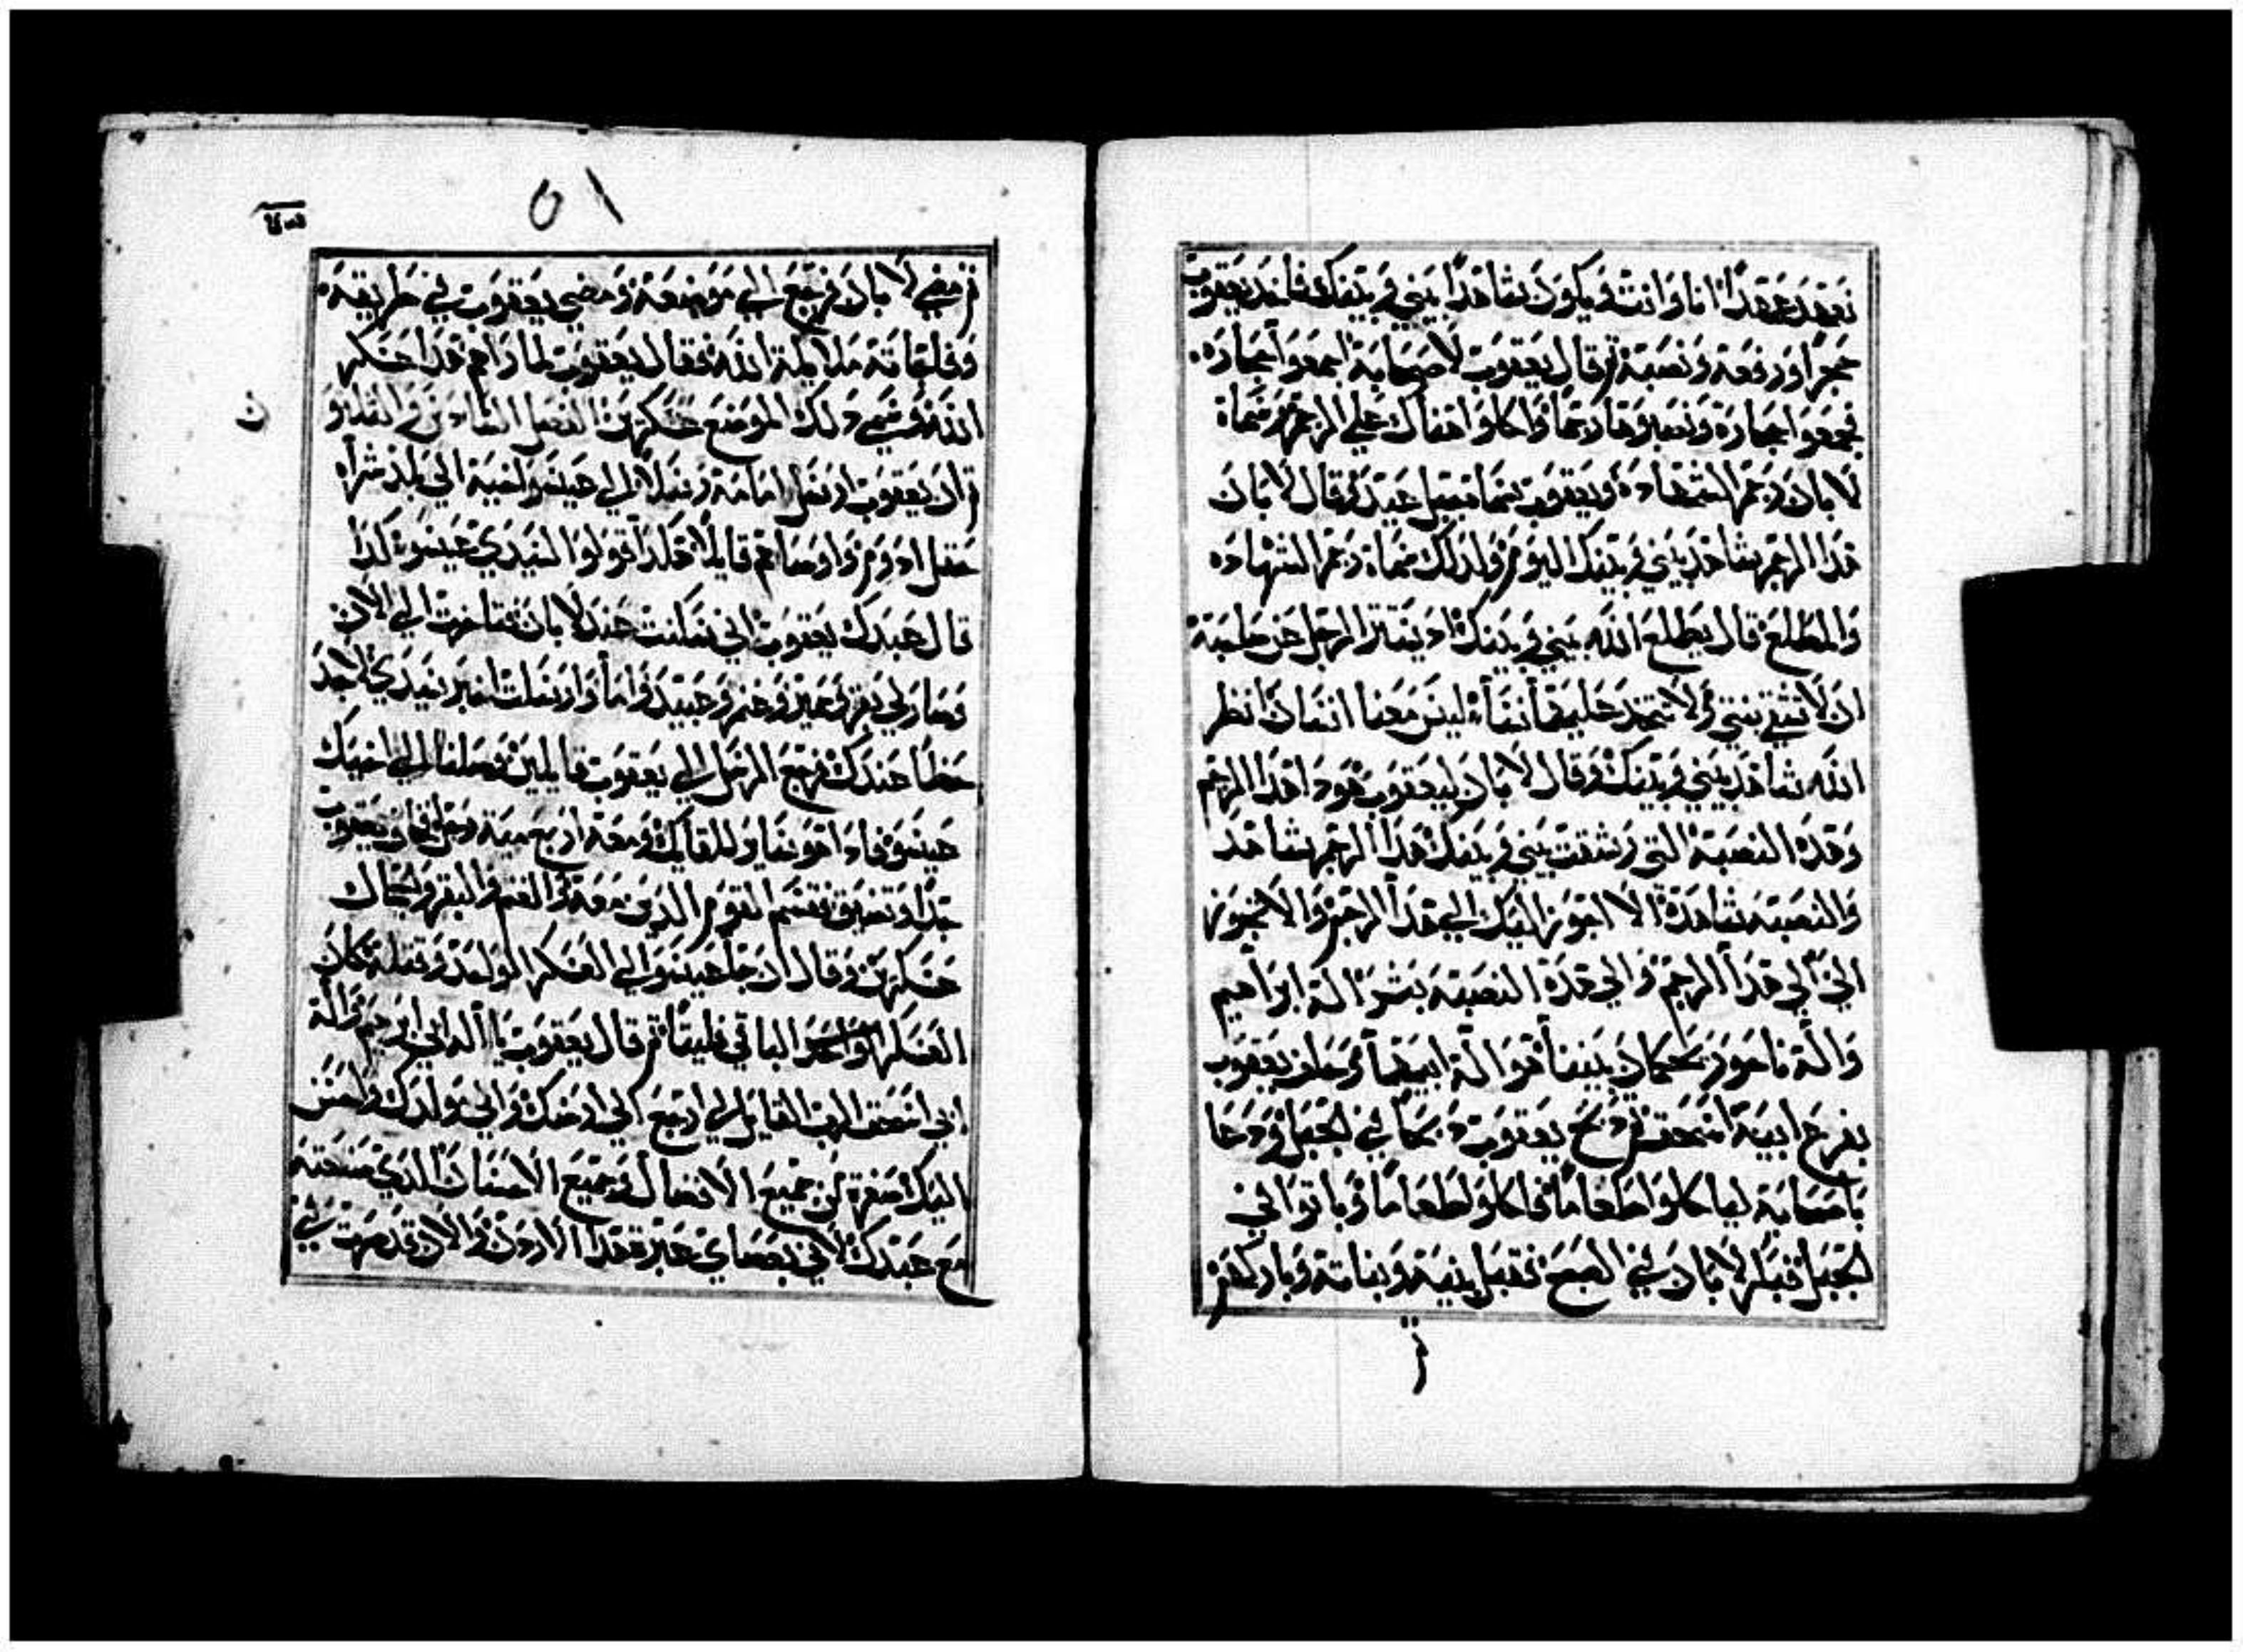 نعقد عقدًا انا وانت ويكون شاهدًا بيني وبينك فاخد يعقوب
حجرًا ورفعه ونصبه ثم قال يعقوب لاصحابه اجمعوا حجاره
فجمعوا حجاره وصيروها رجمًا واكلوا هناك علي الرجم وسماه
لابان رجم الشهاده ويعقوب سماه جلعيد وقال لابان
هدا الرجم شاهد بيني وبينك اليوم ولدلك سماه رجم الشهاده
والمطلع قال يطلع الله بيني وبينك اد يستتر الرجل عن صاحبه
ان لا تشقي بنتي ولا تتخد عليهما نساء ليس معنا انسان انظر
الله شاهد بيني وبينك وقال لابان ليعقوب هودا هدا الرجم
وهده النصبة التي بيني وبينك هدا الرجم شاهد
والنصبه شاهدة الا اجوز اليك الي هدا الرجم والا تجوز
الي الي هدا الرجم والي هدة النصبه بشر الة ابراهيم
والة ناحور يحكمان بيننا هو الة ابيهما وحلف يعقوب
بفزع ابيه اسحق ودبح يعقوب دبحًا في الجبل ودعا
باصحابه لياكلوا طعامًا فاكلوا طعامًا وباتوا في
الجبل فبكر لابان في الصبح فقبل بنيه وبناته وباركهم
ثم
١٥
ثم مضي لابان فرجع الي موضعه ومضي يعقوب في طريقه
وفلقاته ملايكة الله فقال يعقوب لما راهم هدا عسكر
الله وسمي دلك الموضع عسكرين الفصل السادس والتلاتو
ن
ثم ان يعقوب ارسل امامه رسلا الي عيسو اخيه الي بلد شراه
حقل ادوم واوصاهم قايلا هكدا قولوا لسيدي عيسو كدا
قال عبدك يعقوب اني سكنت عند لابان فتاخرت الي الان
وصار لي بقر وحمير وغنم وعبيد واما وارسلت اخبر سيدي لاجد
حظا عندك فرجع الرسل الي يعقوب قايلين وصلنا الي اخيك
عيسو فاداهو جايا للقايك ومعه اربع مية رجل فخاف يعقوب
جدًا وتضيق فقسم القوم الدين معه والغنم والبقر والجمال
عسكرين وقال ان جا عيسو الي العسكر الواحد وقتله كان
العسكر الباقي فليتا ثم قال يعقوب يا اله ابي ابرهيم واله
ابي اسحق الرب القايل لي ارجع الي ارضك والي مولدك واحسن
اليك صغرت عن جميع الافضال وجميع الاحسان الدي صنعته
مع عبدك لاني بعصاي عبرت هدا الاردن والان قد صرت في